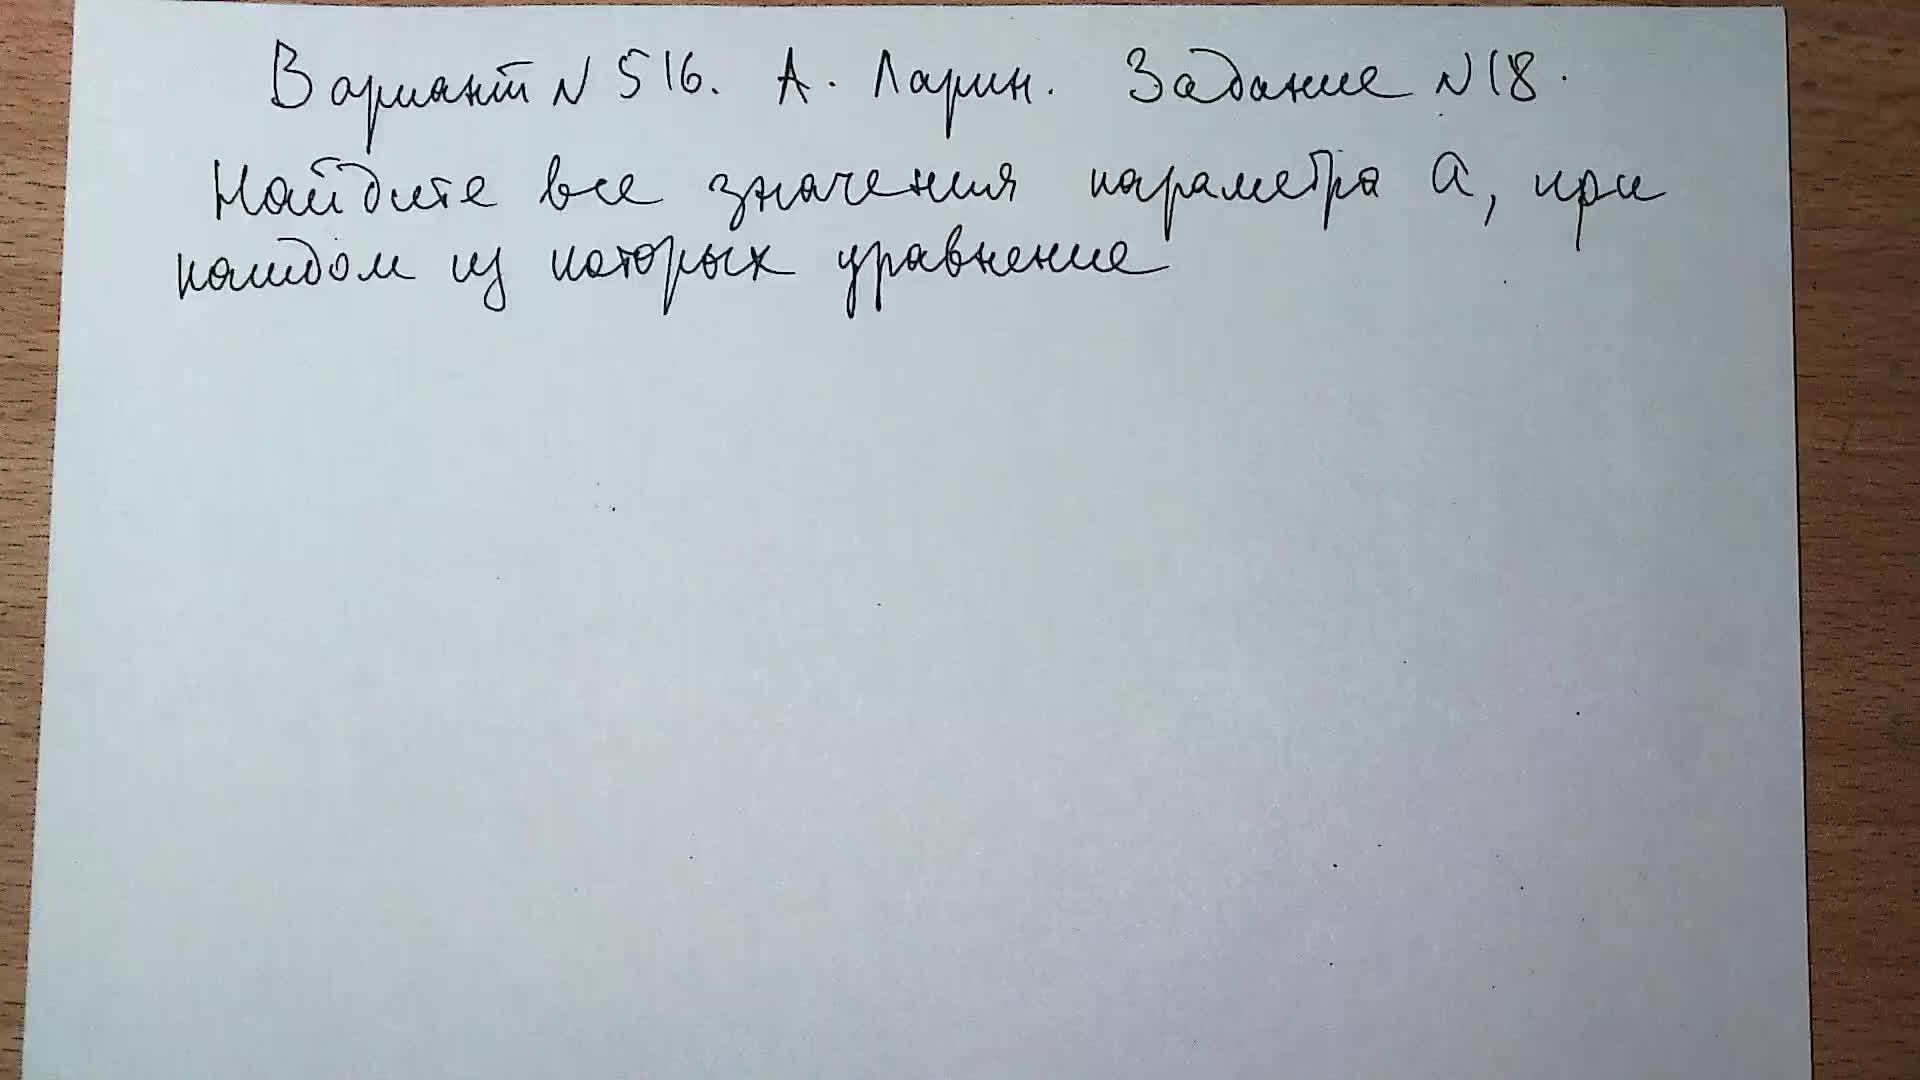 Вариант N 516. А. Ларин. Задание N18.
Найдите все значения параметра а, при
каждом из которых уравнение